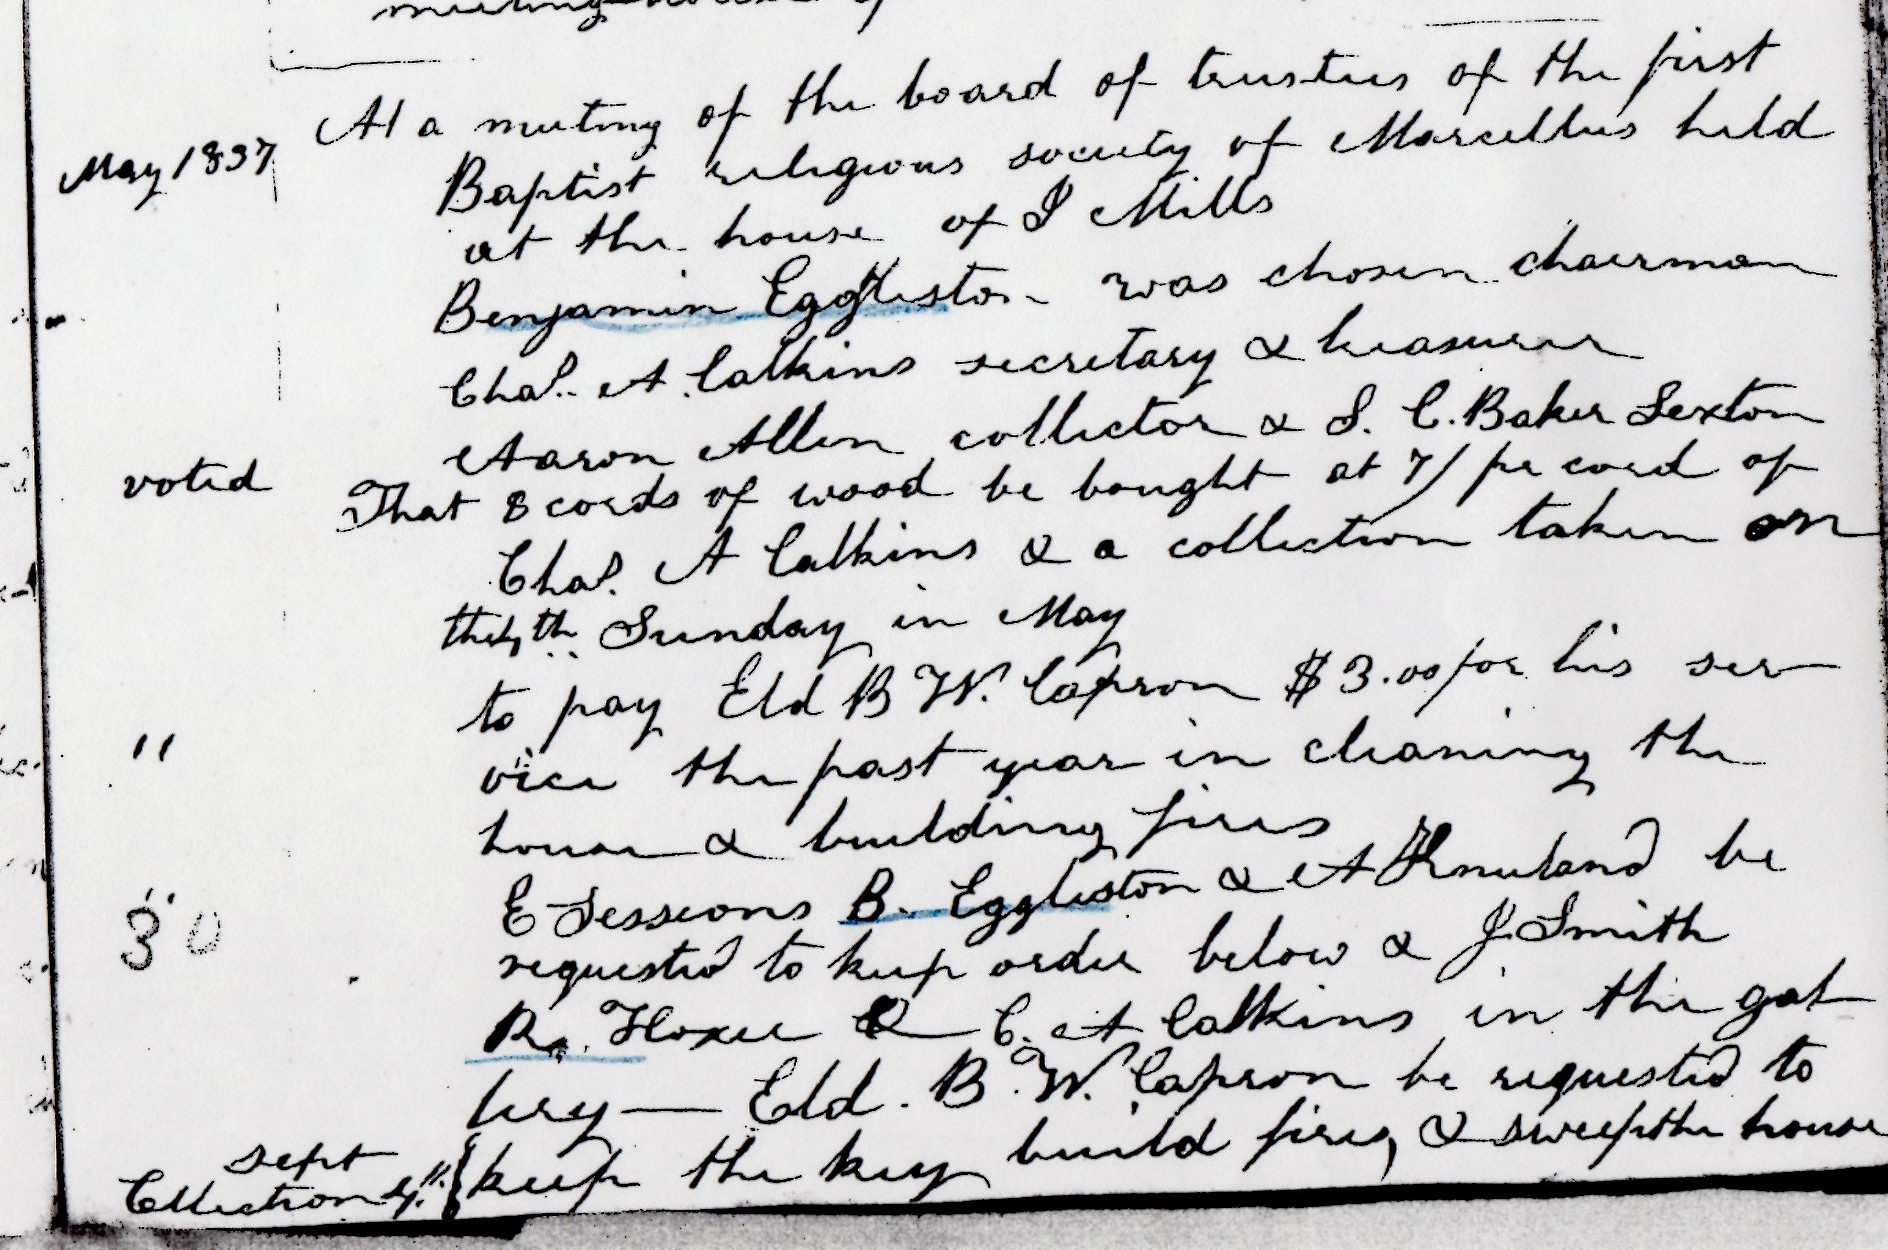 May 1837 At a meeting of the board of trustees of the first
Baptist religious society of Marcellus held
at the house of I Mills
Benjamin Eggleston was chosen chairman
Chas. A. Calkins secretary & treasurer
Aaron Allen collector & S. C. Baker Sexton
voted That 8 cords of wood be bought at 7/ pr cord of
Chas. A Calkins & a collection taken on
the 4th Sunday in May
" to pay Eld B W. Capron $3.00 for his ser
vice the past year in cleaning the
house & building fires
" E Sessions B. Eggleston & A Kneeland be
30 requested to keep order below & J. Smith
R. Hoxie & C. A Calkins in the gal
lery — Eld. B. W. Capron be requested to
sept
Collection keep the key build fires, & sweep the house